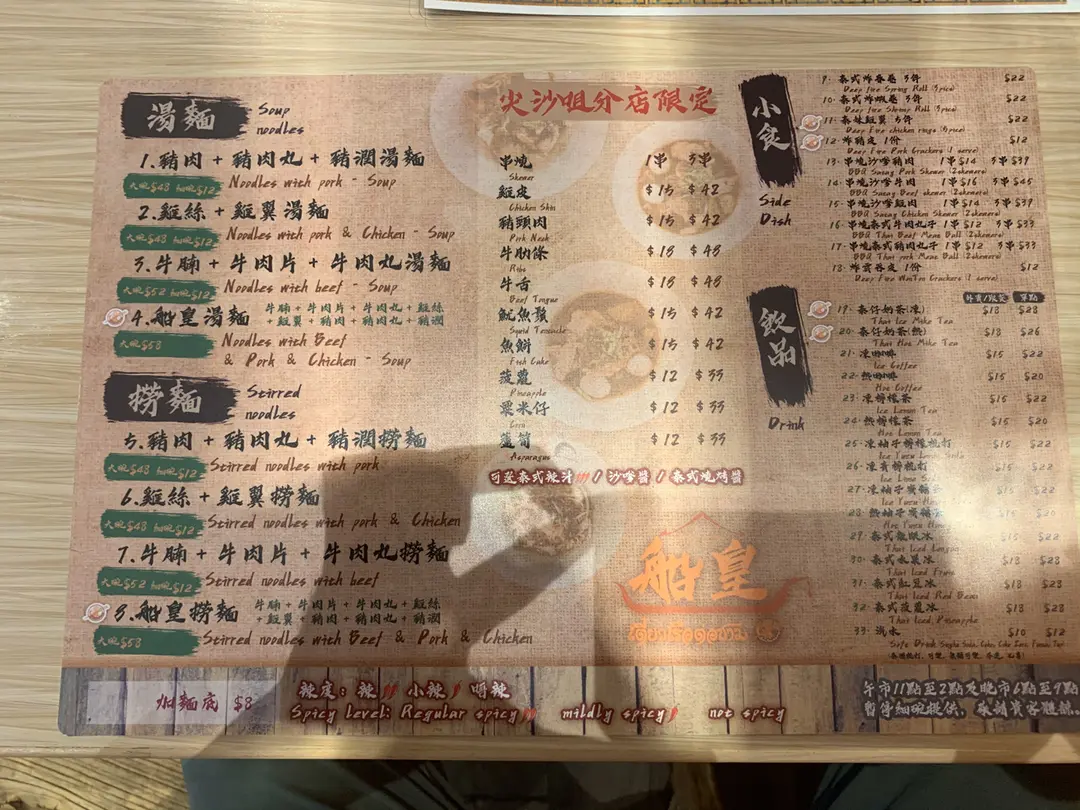 湯麵
Soup
noodles
1.豬肉 + 豬肉丸 + 豬潤湯麵
大碗$48 細碗$12
Noodles with pork - Soup
2.雞絲 + 雞翼湯麵
大碗$48 細碗$12
Noodles with pork & Chicken - Soup
3.牛腩 + 牛肉片 + 牛肉丸湯麵
大碗$52 細碗$12
Noodles with beef - Soup
4.船皇湯麵
牛腩 + 牛肉片 + 牛肉丸 + 雞絲
+ 雞翼 + 豬肉 + 豬肉丸 + 豬潤
大碗$58
Noodles with Beef
& Pork & Chicken - Soup
撈麵
Stirred
noodles
5.豬肉 + 豬肉丸 + 豬潤撈麵
大碗$48 細碗$12
Stirred noodles with pork
6.雞絲 + 雞翼撈麵
大碗$48 細碗$12
Stirred noodles with pork & Chicken
7.牛腩 + 牛肉片 + 牛肉丸撈麵
大碗$52 細碗$12
Stirred noodles with beef
8.船皇撈麵
牛腩 + 牛肉片 + 牛肉丸 + 雞絲
+ 雞翼 + 豬肉 + 豬肉丸 + 豬潤
大碗$58
Stirred noodles with Beef & Pork & Chicken
尖沙咀分店限定
串燒 1串 3串
Skewer
雞皮 $15 $42
Chicken Skin
豬頸肉 $15 $42
Pork Neck
牛肋條 $18 $48
Ribs
牛舌 $18 $48
Beef Tongue
魷魚鬚 $15 $42
Squid Tentacle
魚餅 $15 $42
Fish Cake
菠蘿 $12 $33
Pineapple
粟米仔 $12 $33
Corn
蘆筍 $12 $33
Asparagus
可選泰式辣汁 / 沙嗲醬 / 泰式燒烤醬
船皇
小食
Side
Dish
9. 泰式炸春卷 3件 $22
Deep Fire Spring Roll (3pics)
10. 泰式炸蝦卷 3件 $22
Deep Fire Shrimp Roll (3pics)
11. 泰妹雞翼 5件 $22
Deep Fire chicken wings (5pics)
12. 炸豬皮 1份 $12
Deep Fire Pork Crackers (1 serve)
13. 串燒沙嗲豬肉 1串$14 3串$39
BBQ Satay Pork Skewer (1skewers)
14. 串燒沙嗲牛肉 1串$16 3串$45
BBQ Satay Beef skewer (1skewers)
15. 串燒沙嗲雞肉 1串$14 3串$39
BBQ Satay Chicken Skewer (1skewers)
16. 串燒泰式牛肉丸子 1串$12 3串$33
BBQ Thai Beef Meat Ball (1skewers)
17. 串燒泰式豬肉丸子 1串$12 3串$33
BBQ Thai pork Meat Ball (1skewers)
18. 炸雲吞皮 1份 $12
Deep Fire WonTon Crackers (1 serve)
飲品
Drink
外賣/跟餐 單點
19. 泰仔奶茶(凍) $18 $28
Thai Ice Milk Tea
20. 泰仔奶茶(熱) $18 $26
Thai Hot Milk Tea
21. 凍咖啡 $15 $22
Ice Coffee
22. 熱咖啡 $15 $20
Hot Coffee
23. 凍檸檬茶 $15 $22
Ice Lemon Tea
24. 熱檸檬茶 $15 $20
Hot Lemon Tea
25. 凍柚子檸檬梳打 $15 $22
Ice Yuzu Lemon Soda
26. 凍青檸梳打 $15 $22
Ice Lime Soda
27. 凍柚子蜜 $15 $22
Ice Yuzu
28. 熱柚子蜜 $15 $20
Hot Yuzu
29. 泰式龍眼冰 $15 $22
Thai Iced Longan
30. 泰式水果冰 $18 $28
Thai Iced Fruit
31. 泰式紅豆冰 $18 $28
Thai Iced Red Bean
32. 泰式菠蘿冰 $18 $28
Thai Iced Pineapple
33. 汽水 $10 $12
加麵底 $8
辣度: 辣 小辣 唔辣
Spicy Level: Regular spicy mildly spicy not spicy
午市11點至2點及晚市6點至9點
暫停細碗提供，敬請貴客體諒